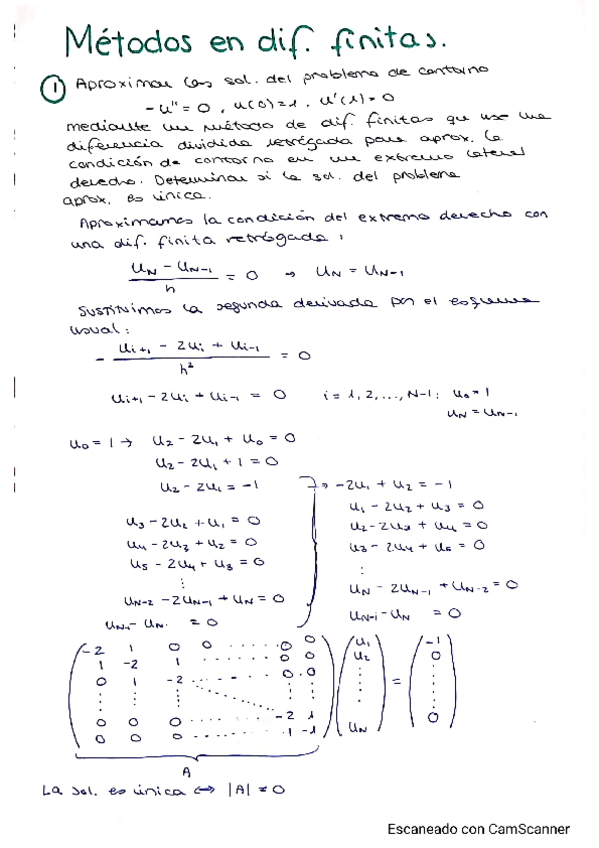 Métodos en dif. finitas.
① Aproximar las sol. del problema de contorno
-u'' = 0, u(0)=1, u'(1)=0
mediante un método de dif. finitas que use una
diferencia dividida retrógrada para aprox. la
condición de contorno en un extremo lateral
derecho. Determinar si la sol. del problema
aprox. es única.
Aproximamos la condición del extremo derecho con
una dif. finita retrógada:
(u_N - u_{N-1})/h = 0 → u_N = u_{N-1}
Sustituimos la segunda derivada por el esquema
usual:
- (u_{i+1} - 2u_i + u_{i-1})/h² = 0
u_{i+1} - 2u_i + u_{i-1} = 0 i = 1, 2, ..., N-1; u_0 = 1
u_N = u_{N-1}
u_0 = 1 → u_2 - 2u_1 + u_0 = 0
u_2 - 2u_1 + 1 = 0
u_2 - 2u_1 = -1
u_3 - 2u_2 + u_1 = 0
u_4 - 2u_3 + u_2 = 0
u_5 - 2u_4 + u_3 = 0
⋮
u_{N-2} - 2u_{N-1} + u_N = 0
u_{N-1} - u_N = 0
→ -2u_1 + u_2 = -1
u_1 - 2u_2 + u_3 = 0
u_2 - 2u_3 + u_4 = 0
u_3 - 2u_4 + u_5 = 0
⋮
u_N - 2u_{N-1} + u_{N-2} = 0
u_{N-1} - u_N = 0
-2 1 0 0 ..... 0 0 u_1 -1
1 -2 1 ..... 0 0 u_2 0
0 1 -2 ..... 0 0
⋮ ⋮ ⋮ ⋮ ⋮ ⋮ = ⋮
0 0 0 ..... -2 1
0 0 0 ..... 1 -1 u_N 0
A
La sol. es única ↔ |A| ≠ 0
Escaneado con CamScanner